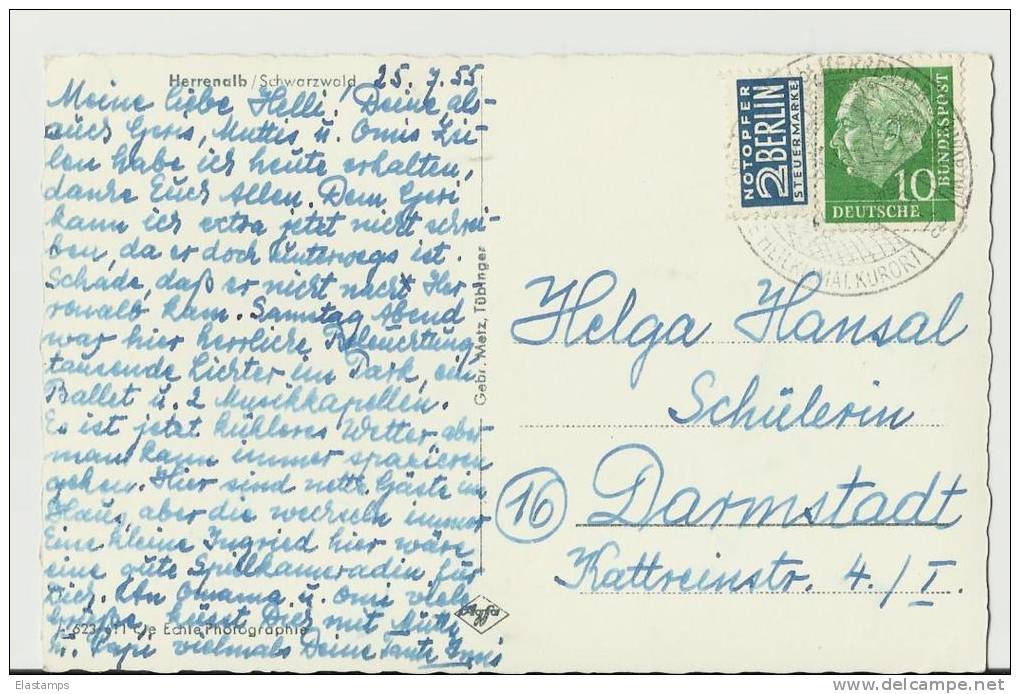 Herrenalb / Schwarzwald 25. 7. 55
Meine liebe Helli, Deine als-
auch Geris, Muttis u. Omis Zei-
len habe ich heute erhalten,
danke Euch Allen. Dem Geri
kann ich extra jetzt nicht schrei-
ben, da er doch unterwegs ist.
Schade, daß er nicht nach Her-
renalb kam. Samstag Abend
war hier herrliche Beleuchtung,
tausende Lichter im Park, ein
Ballet u. 2 Musikkapellen.
Es ist jetzt kühleres Wetter, aber
man kann immer spazieren
gehen. Hier sind nette Gäste im
Haus, aber die wechseln immer
Eine kleine Ingried hier wäre
eine gute Spielkameradin für
Dich. An Omama u. Omi viele
Grüße, küsst Dich mit Mutti
u. Papi vielmals Deine Tante
Echte Photographie
Agfa
Gebr. Metz, Tübingen
NOTOPFER
2 BERLIN
STEUERMARKE
10
DEUTSCHE
BUNDESPOST
KURORT
Helga Hansal
Schülerin
16 Darmstadt
Kattreinstr. 4./I.
Elastamps
delcampe.net